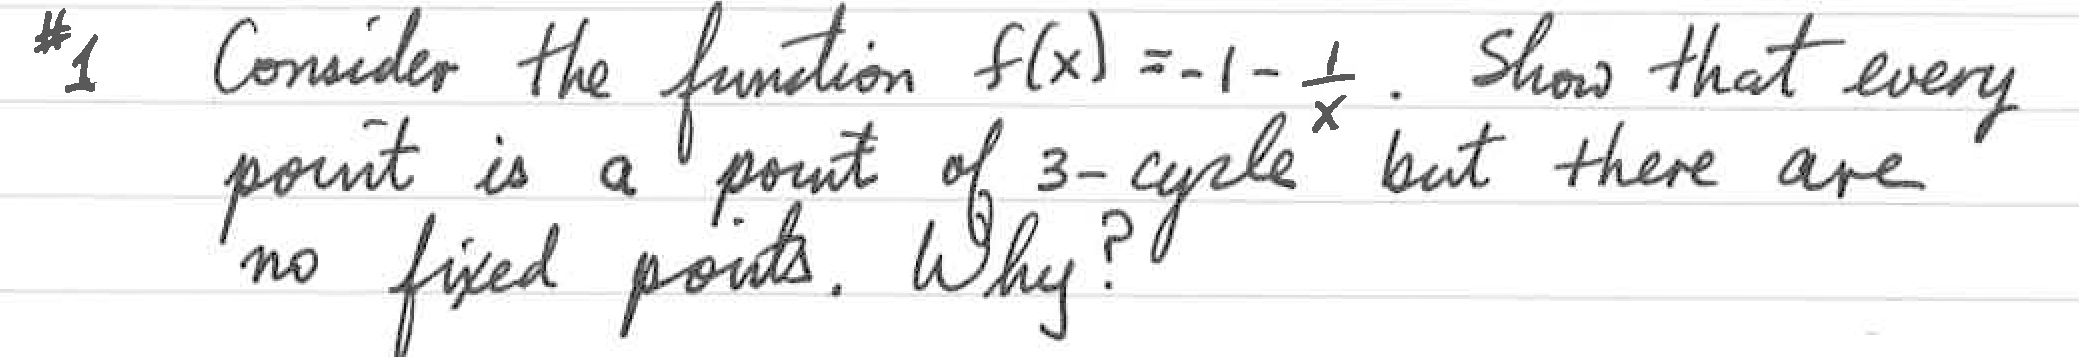 #1 Consider the function f(x) = -1 - 1/x. Show that every
point is a point of 3-cycle but there are
no fixed points. Why?